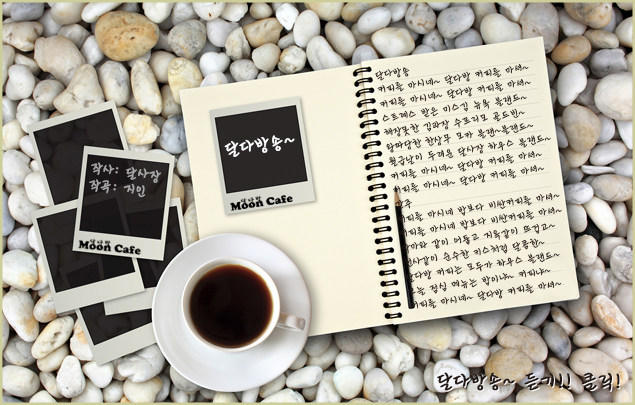 작사: 달사장
작곡: 지인
달다방
Moon Cafe
달다방송~
달다방
Moon Cafe
달다방송
커피를 마시네~ 달다방 커피를 마셔~
커피를 마시네~ 달다방 커피를 마셔~
스트레스 받은 미스김 뉴욕 블랜드~
해장못한 김과장 수프리모 골드빈~
담마당한 한상무 모카 블랜~블랜드~
월급날이 두려운 달사장 하우스 블랜드~
커피를 마시네~ 달다방 커피를 마셔~
커피를 마시네~ 달다방 커피를 마셔~
주
커피를 마시네 밥보다 비싼커피를 마셔~
커피를 마시네 밥보다 비싼커피를 마셔~
같이 어둡고 지옥같이 뜨겁고~
천사같이 순수한 키스처럼 달콤한~
달다방 커피는 모두가 하우스 블랜드~
오늘 점심 메뉴는 밥이냐~ 커피냐~
커피를 마시네~ 달다방 커피를 마셔~
달다방송~ 듣기!! 클릭!